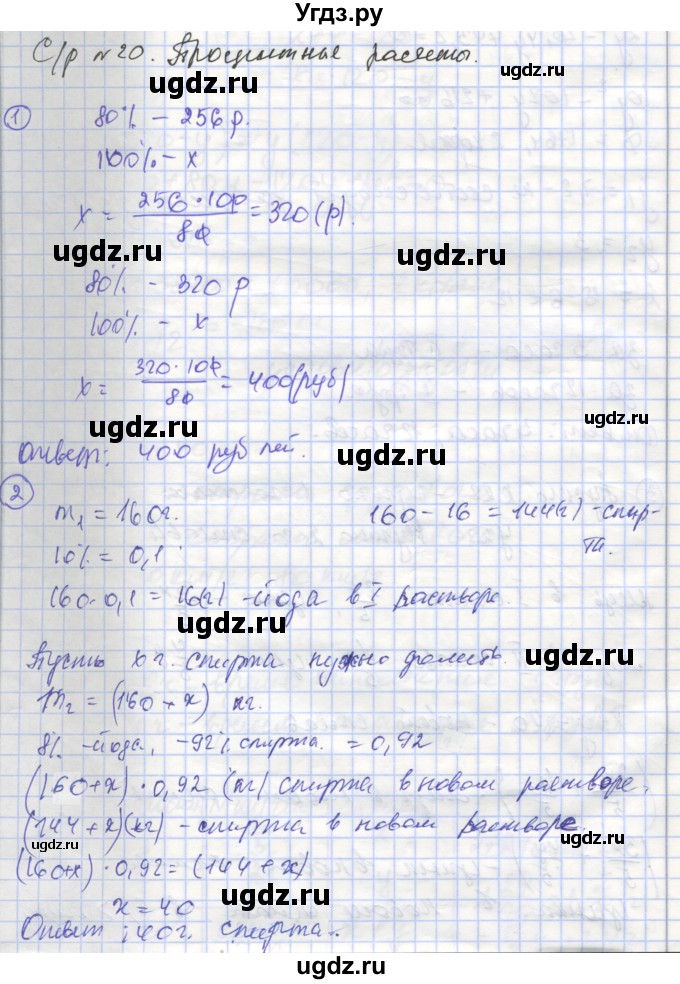 Угдз.ру
С/р №20. Процентные расчеты.
ugdz.ru ugdz.ru
1 80% – 256 р.
100% – x
x = 256·100/80 = 320 (р).
ugdz.ru ugdz.ru
80% – 320 р
100% – x
x = 320·100/80 = 400 (руб)
ugdz.ru
Ответ: 400 рублей.
ugdz.ru ugdz.ru
2 m₁ = 160г. 160 – 16 = 144(г) – спир-
та.
10% = 0,1
160·0,1 = 16(г) – йода в I растворе.
ugdz.ru ugdz.ru
Пусть x г. спирта нужно долить.
m₂ = (160 + x) кг.
8% – йода, – 92% спирта. = 0,92
(160+x)·0,92 (кг) спирта в новом растворе.
ugdz.ru
(144 + x)(кг) – спирта в новом растворе.
ugdz.ru
(160+x)·0,92 = (144 + x)
ugdz.ru
x = 40
Ответ: 40г. спирта.
ugdz.ru
ugdz.ru